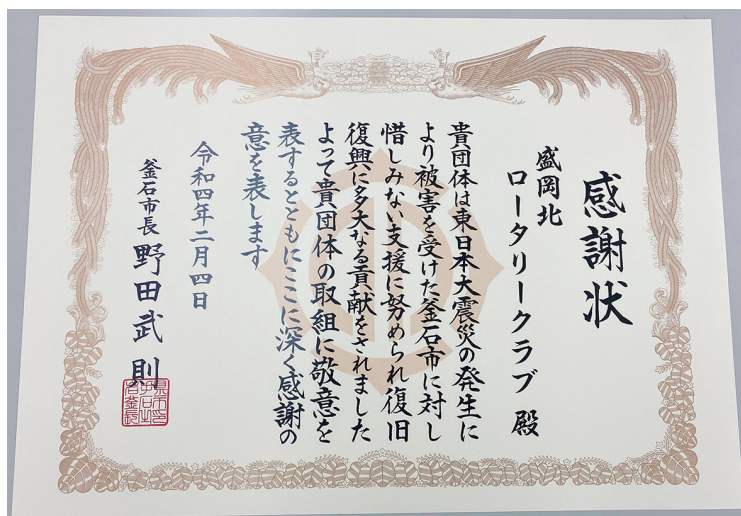 感謝状
盛岡北
ロータリークラブ 殿
貴団体は東日本大震災の発生に
より被害を受けた釜石市に対し
惜しみない支援に努められ復旧
復興に多大なる貢献をされました
よって貴団体の取組に敬意を
表するとともにここに深く感謝の
意を表します
令和四年二月四日
釜石市長 野田武則